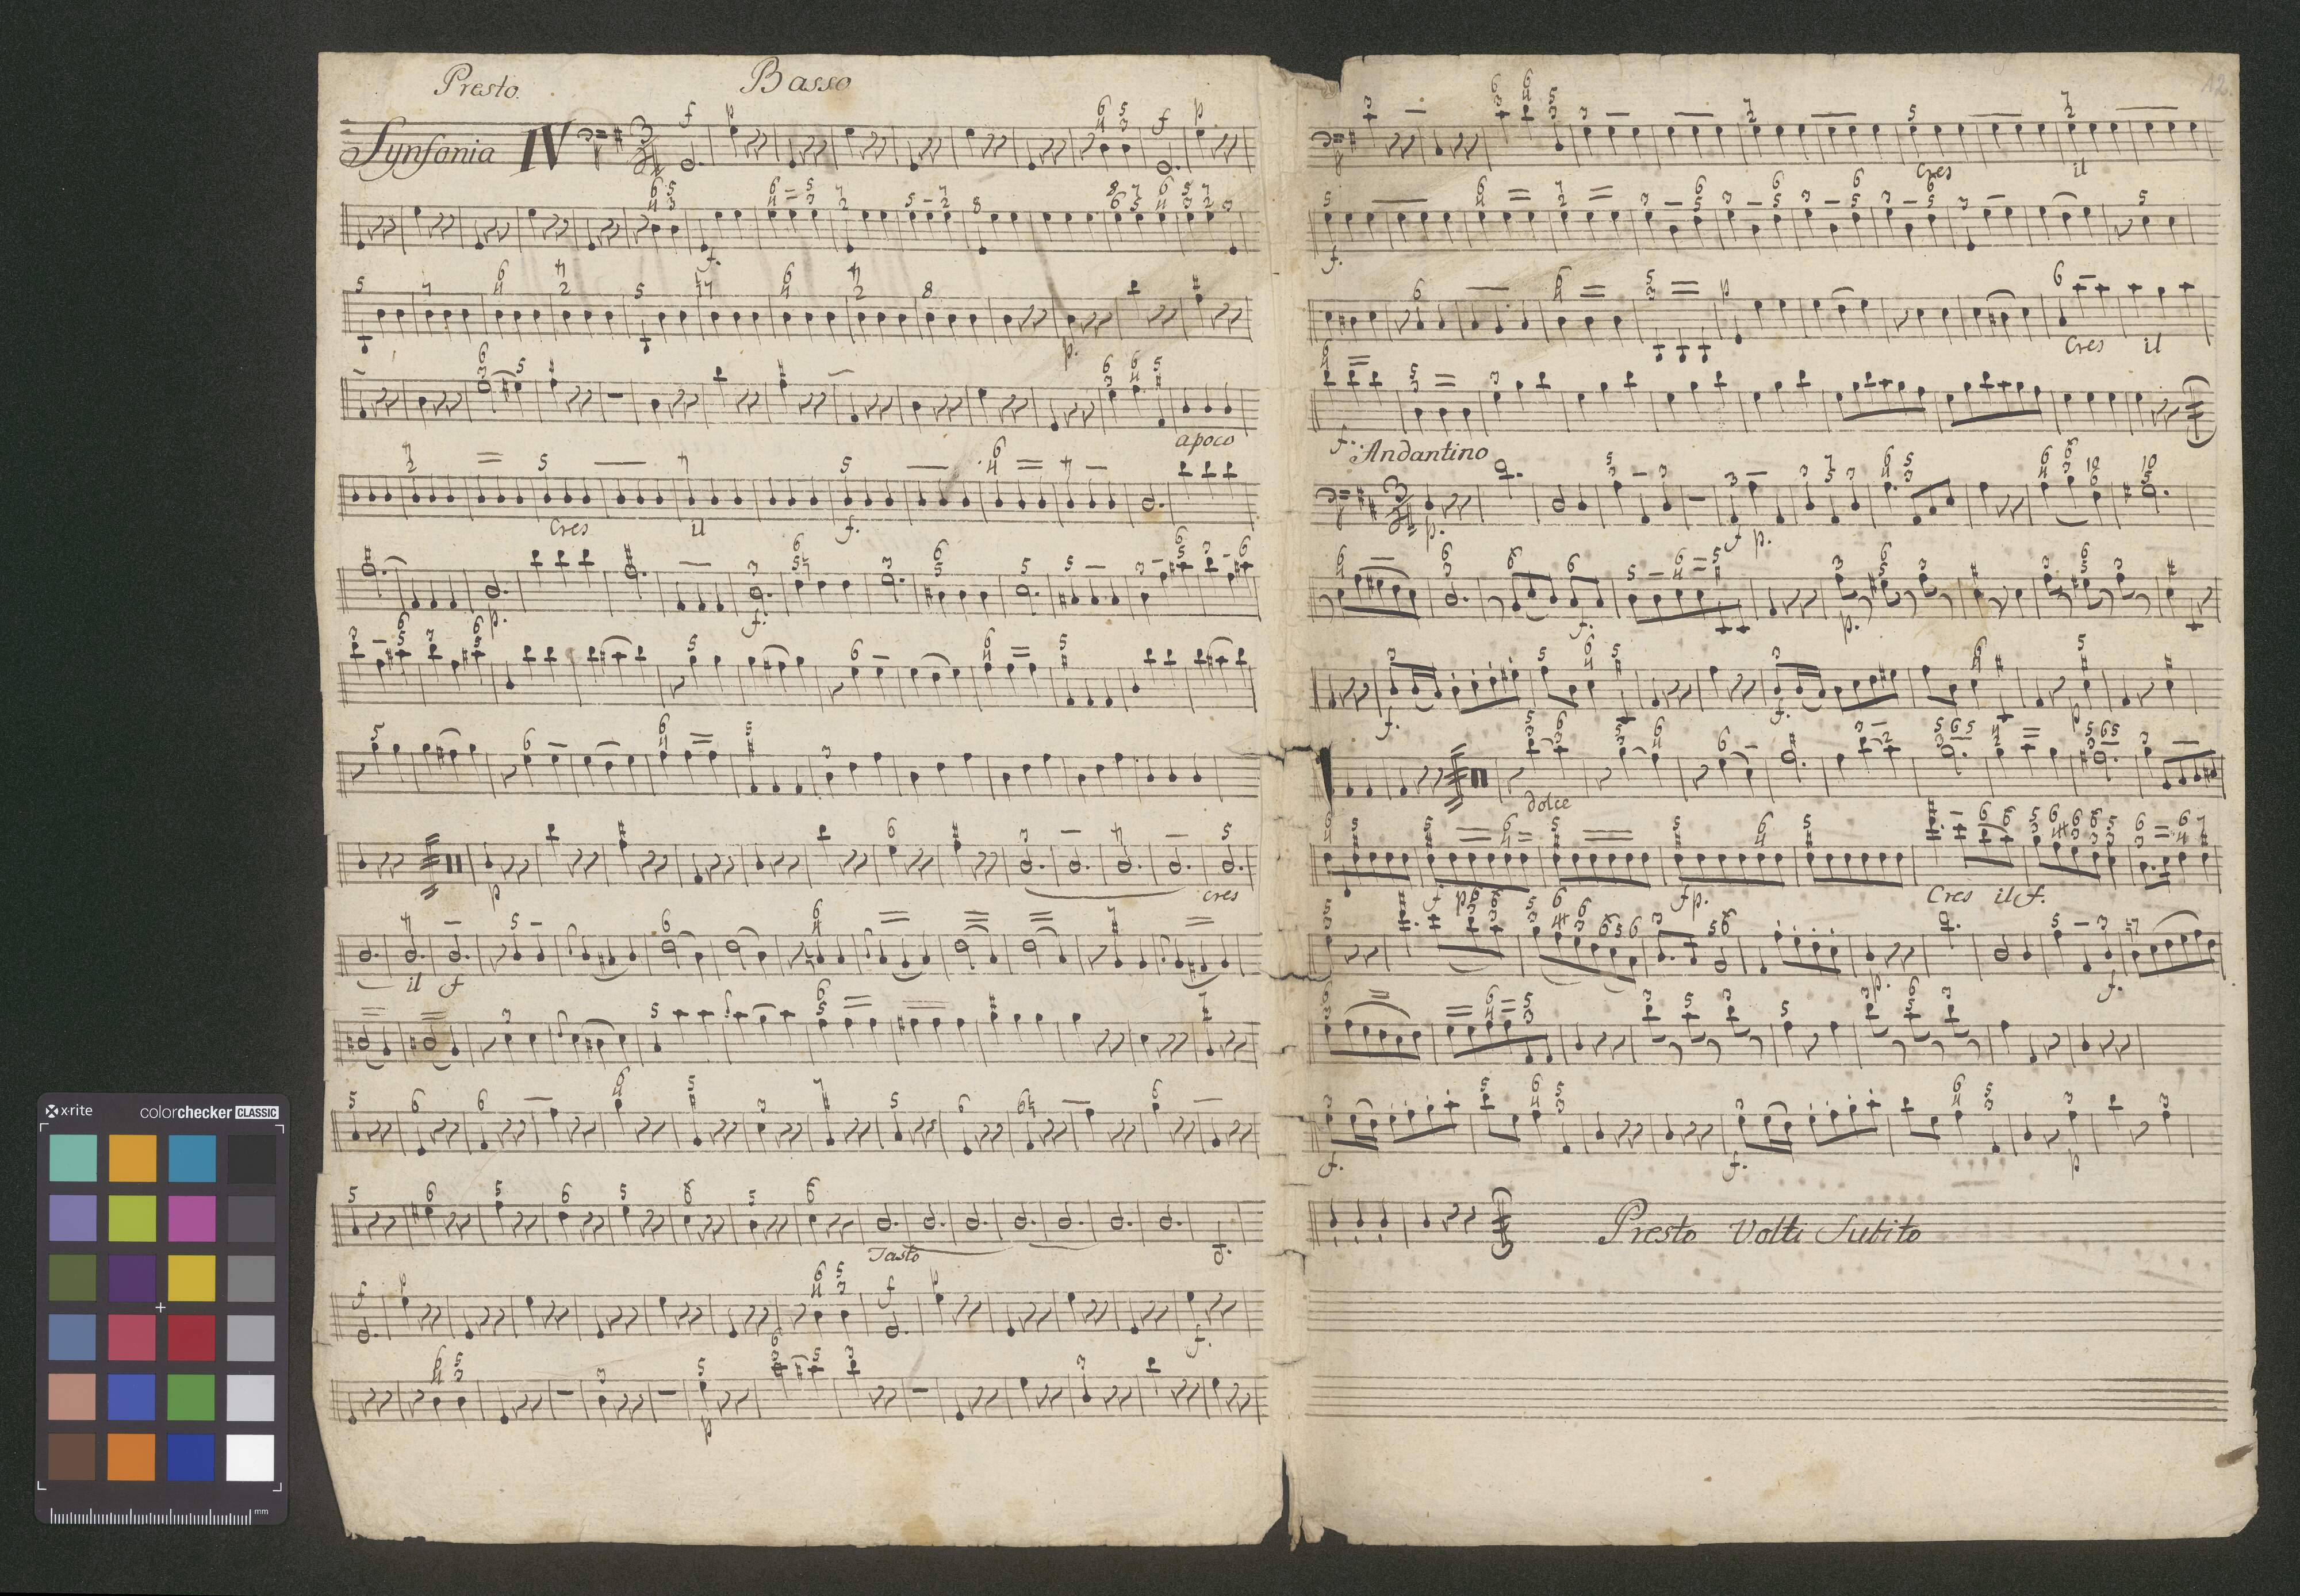 Presto. Basso
Synfonia IV
f p f p
f.
p.
apoco
cres il f.
p. f.
p cres
il f
Tasto
f p f p f.
p
12.
cres il
f.
p Cres il
f. Andantino
p. f p.
f. p.
f. f. p
dolce
f p f p. Cres il f.
p. f.
f. f. p
Presto Volti Subito
x-rite colorchecker CLASSIC
mm